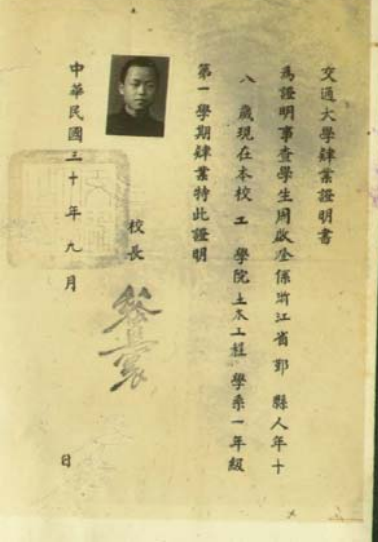 交通大學肄業證明書
為證明事查學生周啟全係浙江省鄞縣人年十
八歲現在本校工學院土木工程學系一年級
第一學期肄業特此證明
校長
中華民國三十年九月 日